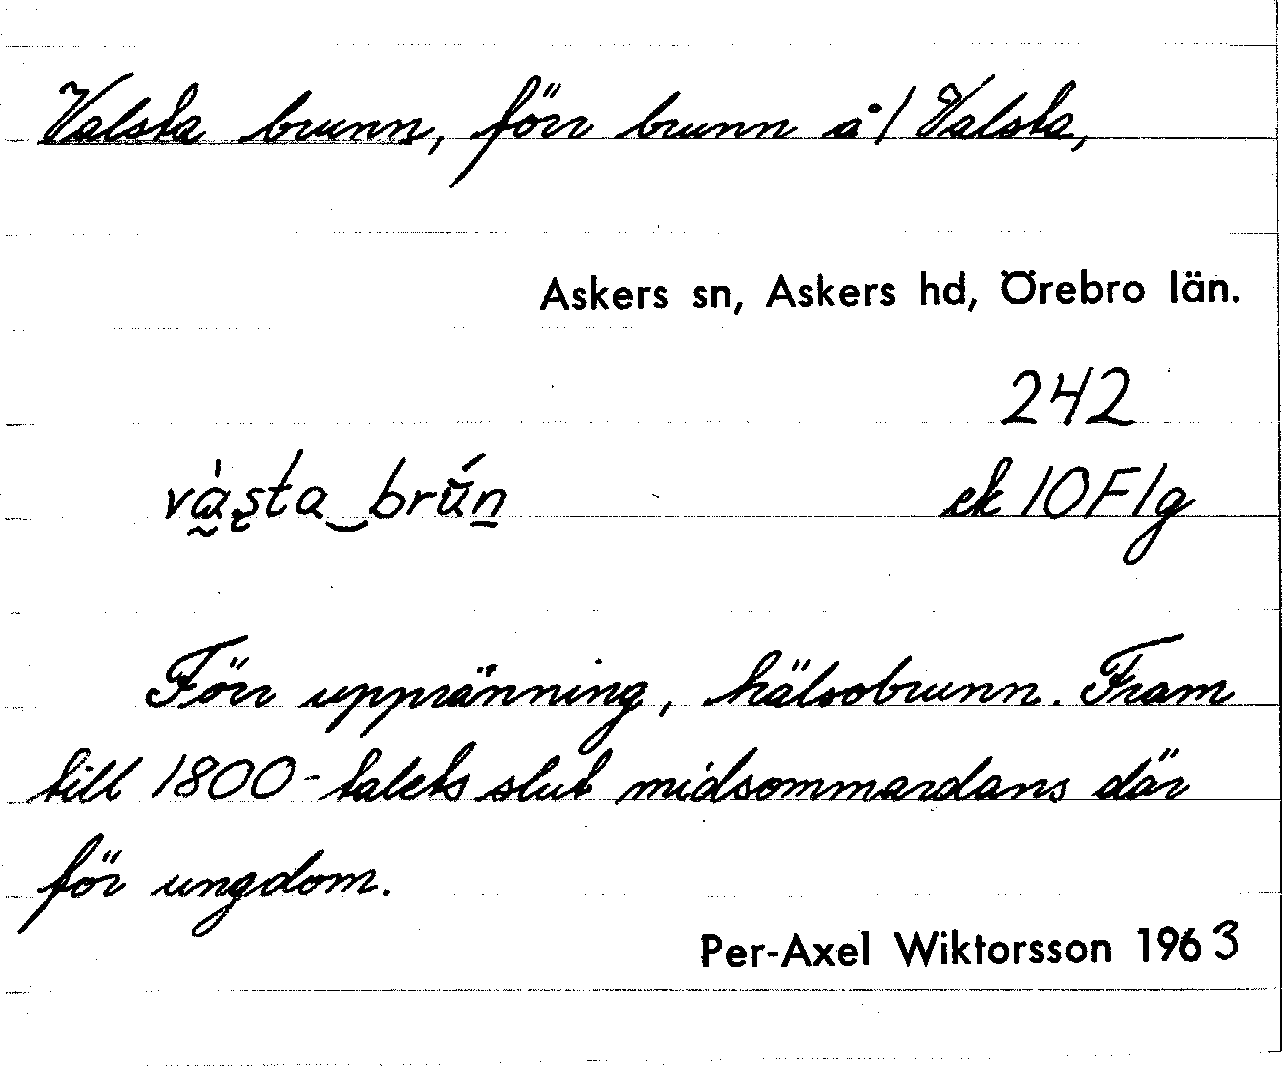 Valsta brunn, förr brunn å/ Valsta,
Askers sn, Askers hd, Örebro län.
242
vàsta‿brún
ek 10F1g
Förr uppränning, hälsobrunn. Fram
till 1800-talets slut midsommardans där
för ungdom.
Per-Axel Wiktorsson 1963